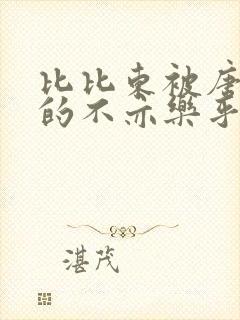 比比东被唐
的不亦乐乎
湛茂